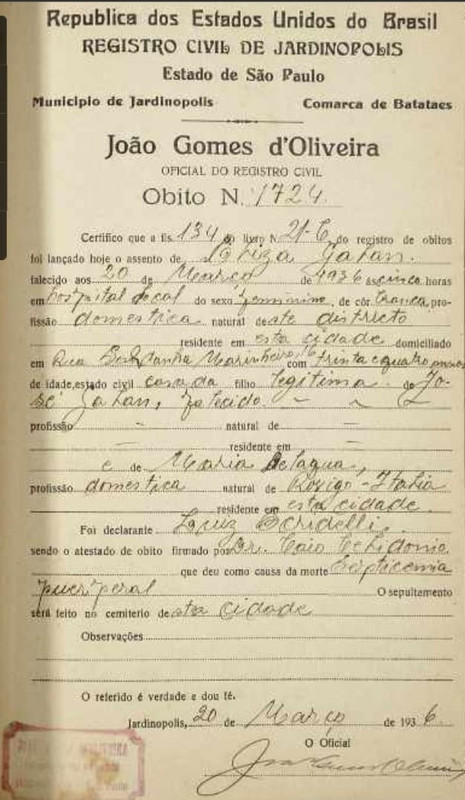 Republica dos Estados Unidos do Brasil
REGISTRO CIVIL DE JARDINOPOLIS
Estado de São Paulo
Municipio de Jardinopolis Comarca de Batataes
João Gomes d'Oliveira
OFICIAL DO REGISTRO CIVIL
Obito N. 1724
Certifico que a fls. 134 do livro N. 21-C do registro de obitos
foi lançado hoje o assento de Zahan
falecido aos 20 de Março de 1936 ás cinco horas
em hospital local do sexo feminino, de côr branca, pro-
fissão domestica natural deste districto
residente em esta cidade domiciliado
em Rua Marinheiro, com trinta e quatro annos
de idade, estado civil casada filho legitima de Jo-
sé Zahan, falecido.
profissão - natural de -
- residente em -
e de Maria Delagua,
profissão domestica natural de Rovigo-Italia
residente em esta cidade.
Foi declarante Luiz
sendo o atestado de obito firmado por Dr. Caio
que deu como causa da morte Septicemia
puerperal O sepultamento
será feito no cemiterio desta cidade
Observações
O referido é verdade e dou fé.
Jardinopolis, 20 de Março de 1936.
O Oficial